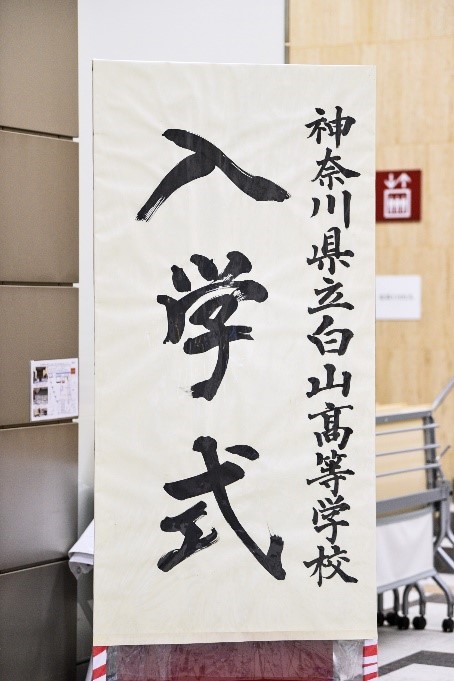 神奈川県立白山髙等学校
入学式